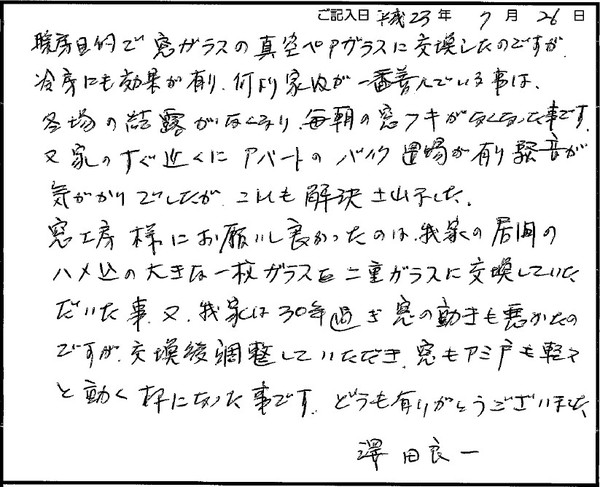 ご記入日 平成23年 7月 26日
暖房目的で窓ガラスの真空ペアガラスに交換したのですが、
冷房にも効果が有り、何より家内が一番喜んでいる事は、
冬場の結露がなくなり、毎朝の窓フキがなくなった事です。
又家のすぐ近くにアパートのバイク置場が有り騒音が
気がかりでしたが、これも解決出来ました。
窓工房様にお願いし良かったのは、我家の居間の
ハメ込の大きな一枚ガラスを二重ガラスに交換していた
だいた事、又、我家は30年過ぎ窓の動きも悪かたの
ですが、交換後調整していただき、窓もアミ戸も軽々
と動く様になった事です。どうも有りがとうございました
澤田良一